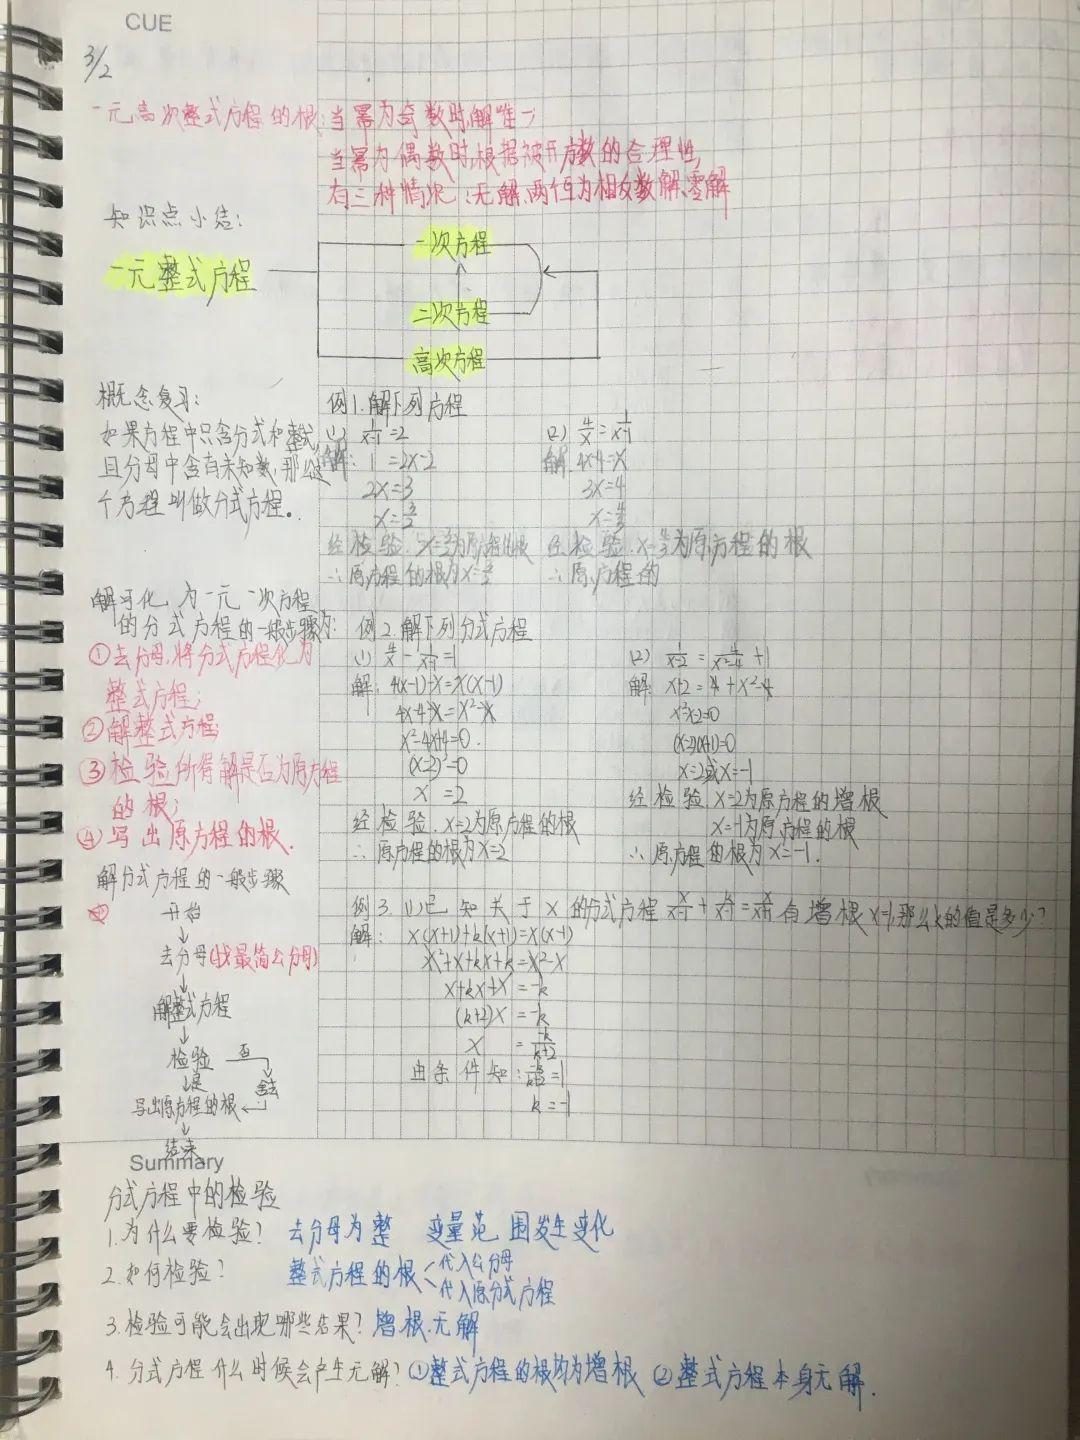 CUE
3/2
一元高次整式方程的根:当幂为奇数时,解唯一
当幂为偶数时,根据被开方数的合理性,
有三种情况:无解、两个互为相反数解、零解
知识点小结:
一元整式方程
一次方程
二次方程
高次方程
概念复习:
如果方程中只含分式和整式,
且分母中含有未知数,那么这
个方程叫做分式方程。
例1.解下列方程
(1) 1/(x-1)=2
解: 1=2x-2
2x=3
x=3/2
经检验,x=3/2为原方程的根
∴原方程的根为x=3/2
(2) 4/x=1/(x-1)
解: 4x-4=x
3x=4
x=4/3
经检验,x=4/3为原方程的根
∴原方程的
解可化为一元一次方程
的分式方程的一般步骤为:
①去分母,将分式方程化为
整式方程;
②解整式方程;
③检验所得解是否为原方程
的根;
④写出原方程的根.
例2.解下列分式方程
(1) 4/x-1/(x-1)=1
解: 4(x-1)-x=x(x-1)
4x-4-x=x²-x
x²-4x+4=0.
(x-2)²=0
x=2
经检验,x=2为原方程的根
∴原方程的根为x=2
(2) 1/(x-2)=4/(x²-4)+1
解: x+2=4+x²-4
x²-x-2=0
(x-2)(x+1)=0
x=2或x=-1
经检验,x=2为原方程的增根
x=-1为原方程的根
∴原方程的根为x=-1.
解分式方程的一般步骤
开始
去分母(找最简公分母)
解整式方程
检验 否
是 舍去
写出原方程的根
结束
例3.(1)已知关于x的分式方程x/(x-1)+k/(x-1)=x/(x+1)有增根x=1,那么k的值是多少?
解: x(x+1)+k(x+1)=x(x-1)
x²+x+kx+k=x²-x
x+kx+x=-k
(k+2)x=-k
x=-k/(k+2)
由条件知:-k/(k+2)=1
k=-1
Summary
分式方程中的检验
1.为什么要检验? 去分母为整 变量范围发生变化
2.如何检验? 整式方程的根 代入公分母
代入原分式方程
3.检验可能会出现哪些结果?增根.无解
4.分式方程什么时候会产生无解?①整式方程的根均为增根 ②整式方程本身无解.